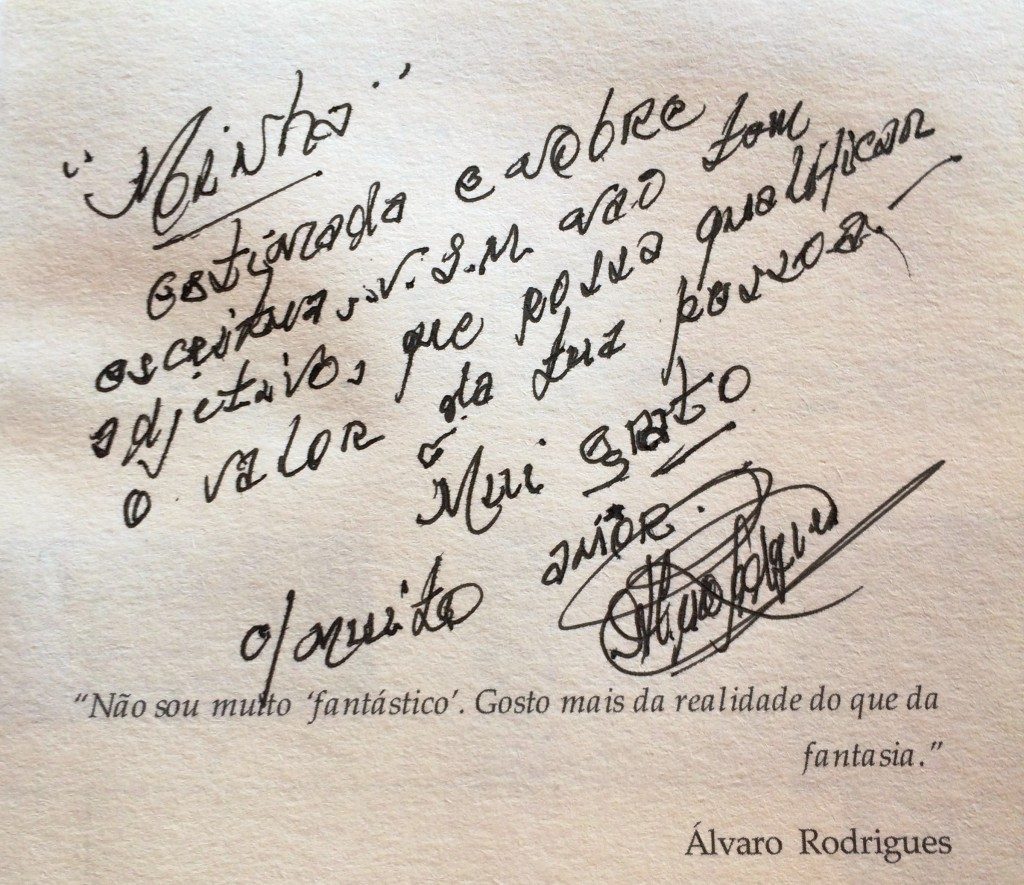 "Norinha"
estimada e nobre
escritura, V.S.M. não tem
adjetivo, que possa qualificar
o valor da tua pessoa.
Mui grato
c/ muito amor.
"Não sou muito 'fantástico'. Gosto mais da realidade do que da
fantasia."
Álvaro Rodrigues